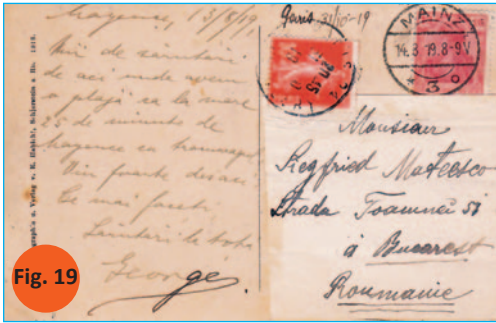 Mayence, 13/8/19,
Mii de sănutări
de aci unde avem
o plajă ca la mare
25 de minute de
Mayence cu tramwayul
Vin foarte des aci
Ce mai faceti
Sănutări la toti
George
Paris 31/10-19
MAINZ
14.8.19.8-9V
* 3 o
Monsieur
Siegfried Mateesco
Strada Toamnei 51
à Bucarest
Roumanie
Verlag v.
1912.
Fig. 19